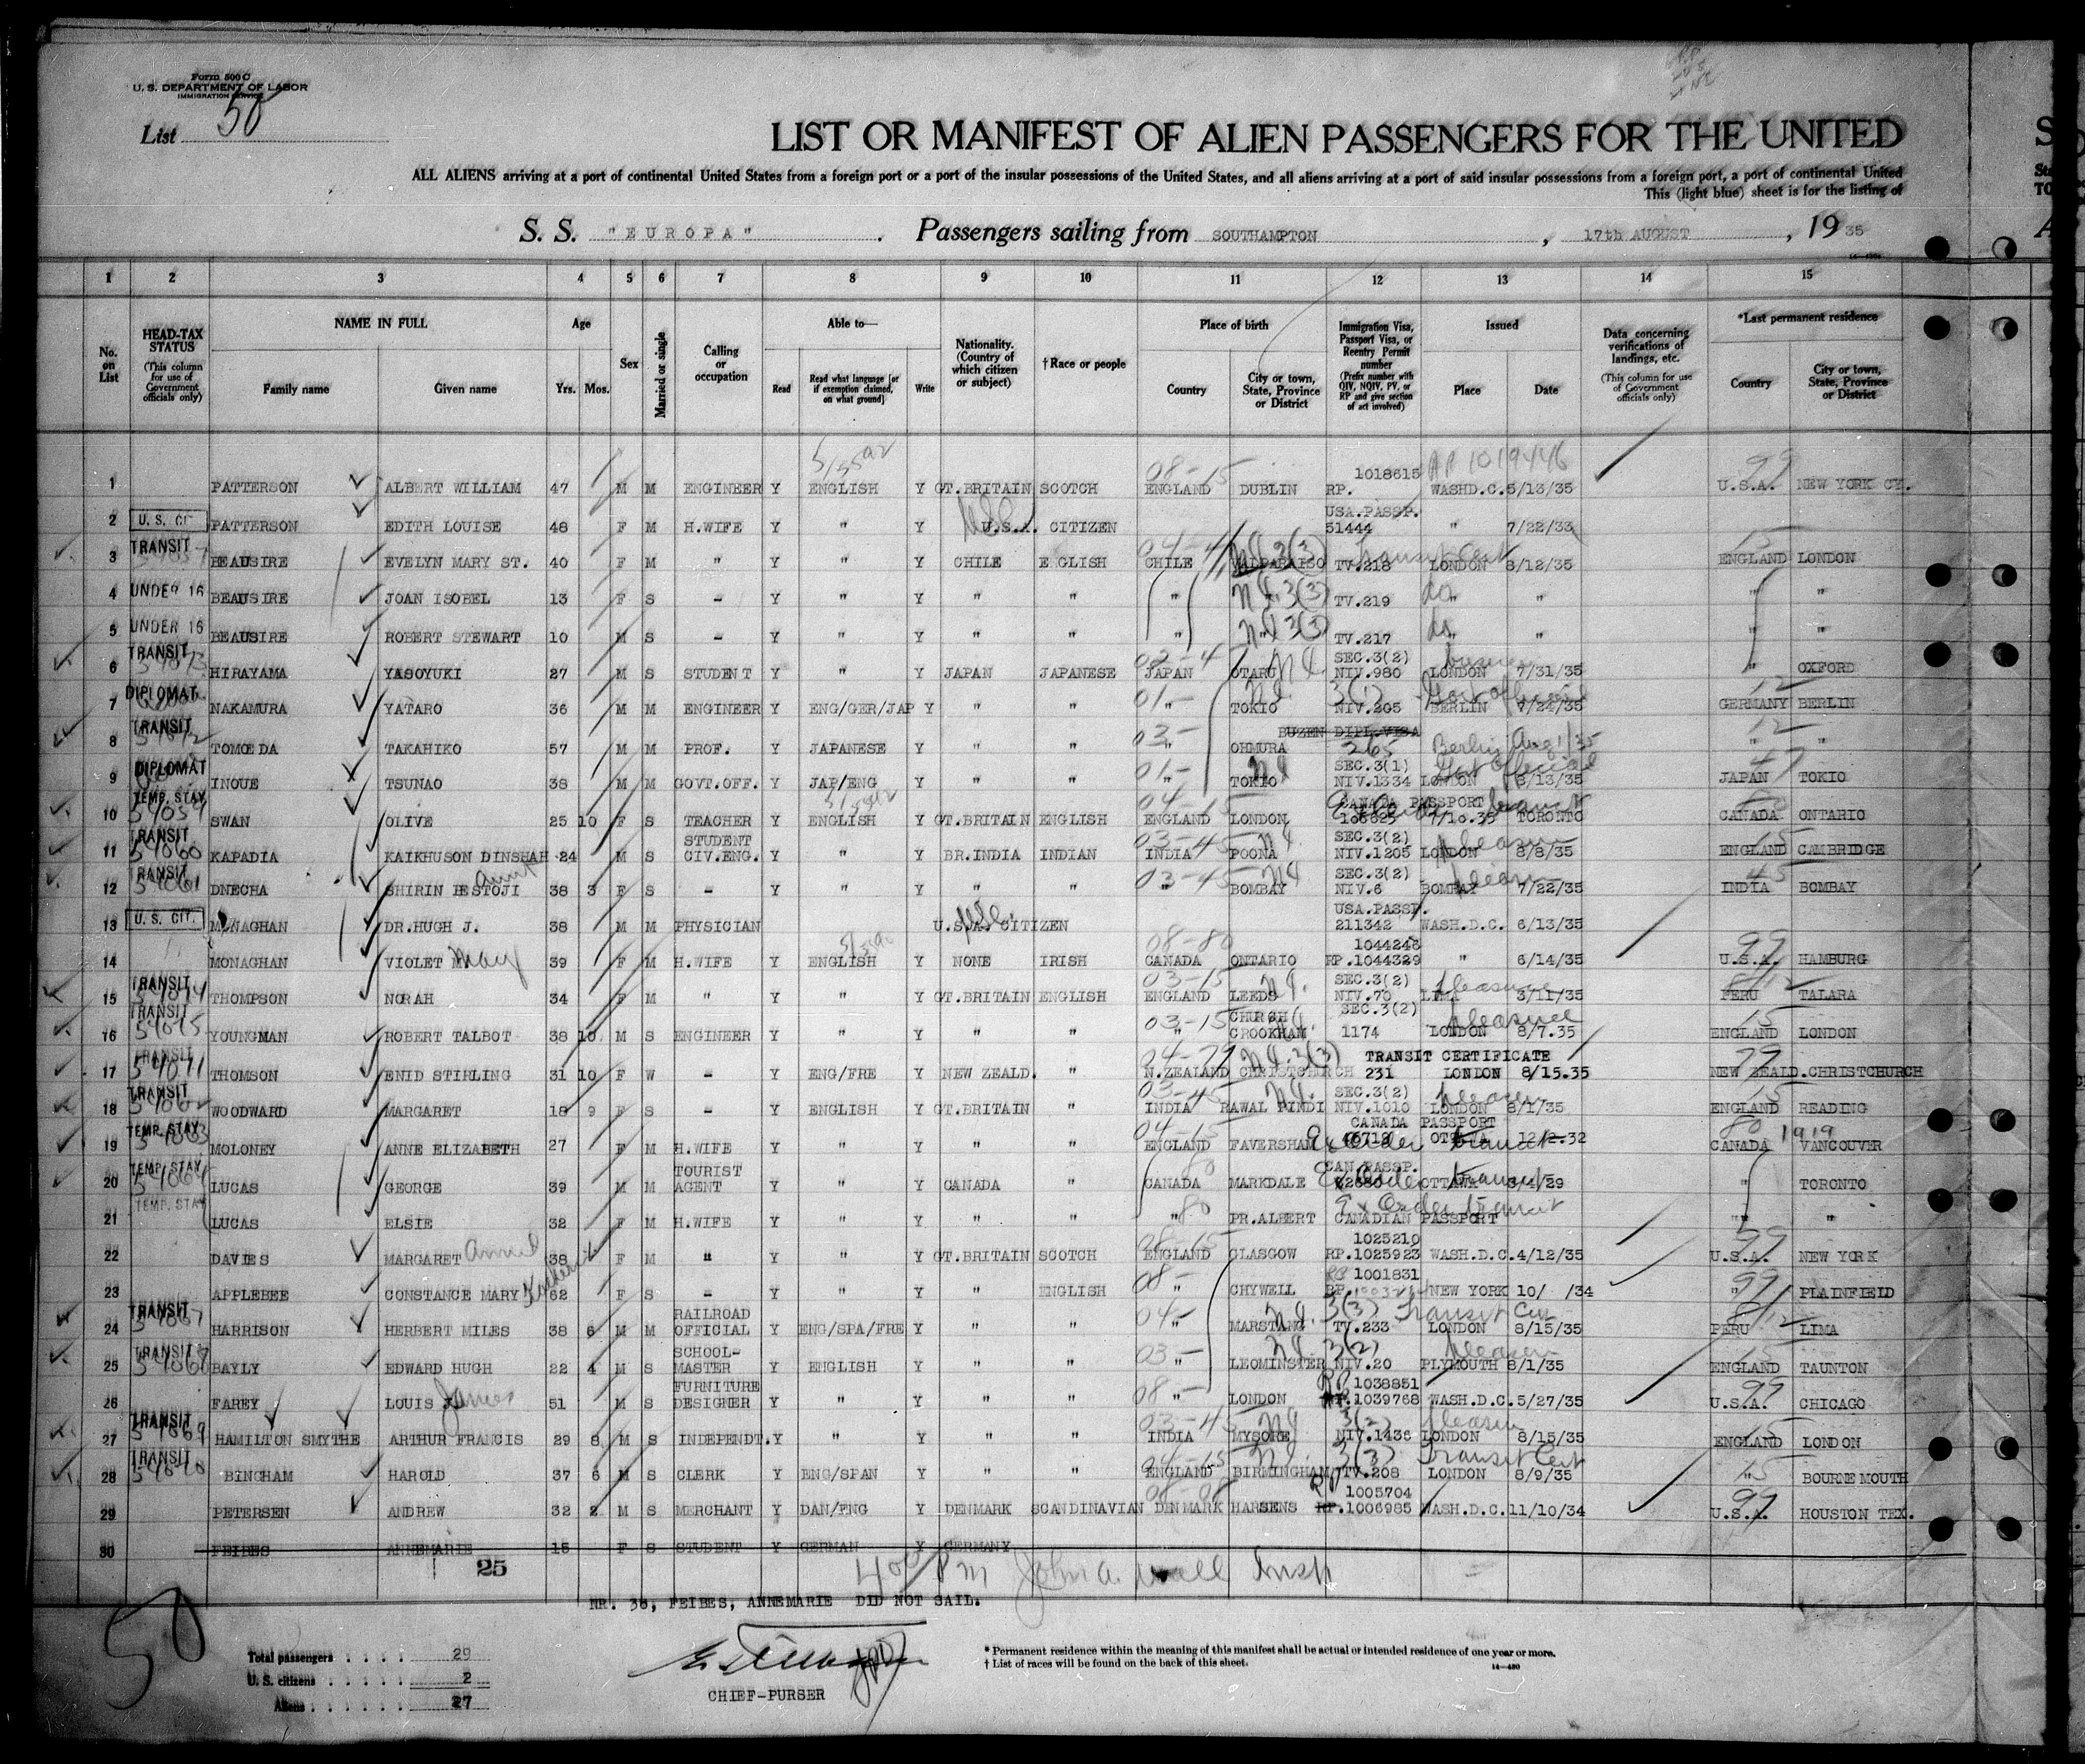 Form 500 C
U. S. DEPARTMENT OF LABOR
IMMIGRATION SERVICE
List 50
LIST OR MANIFEST OF ALIEN PASSENGERS FOR THE UNITED
ALL ALIENS arriving at a port of continental United States from a foreign port or a port of the insular possessions of the United States, and all aliens arriving at a port of said insular possessions from a foreign port, a port of continental United
This (light blue) sheet is for the listing of
S. S. "EUROPA" . Passengers sailing from SOUTHAMPTON , 17th AUGUST , 19 35
1 2 3 4 5 6 7 8 9 10 11 12 13 14 15
No. on List
HEAD-TAX STATUS (This column for use of Government officials only)
NAME IN FULL Family name Given name
Age Yrs. Mos.
Sex
Married or single
Calling or occupation
Able to— Read Read what language [or if exemption claimed, on what ground] Write
Nationality. (Country of which citizen or subject)
†Race or people
Place of birth Country City or town, State, Province or District
Immigration Visa, Passport Visa, or Reentry Permit number (Prefix number with QIV, NQIV, PV, or RP and give section of act involved)
Issued Place Date
Data concerning verifications of landings, etc. (This column for use of Government officials only)
*Last permanent residence Country City or town, State, Province or District
1 PATTERSON ALBERT WILLIAM 47 M M ENGINEER Y ENGLISH Y GT.BRITAIN SCOTCH 08-15 ENGLAND DUBLIN 1018615 RP. 1019446 WASHD.C. 5/13/35 99 U.S.A. NEW YORK CY.
2 U. S. CIT PATTERSON EDITH LOUISE 48 F M H.WIFE Y " Y U.S.A. CITIZEN USA.PASSP. 51444 " 7/22/33
3 TRANSIT BEAUSIRE EVELYN MARY ST. 40 F M " Y " Y CHILE ENGLISH CHILE VALPARAISO 3(3) TV.218 Transit Cert LONDON 8/12/35 ENGLAND LONDON
4 UNDER 16 BEAUSIRE JOAN ISOBEL 13 F S - Y " Y " " " " 3(3) TV.219 do " " " "
5 UNDER 16 BEAUSIRE ROBERT STEWART 10 M S - Y " Y " " " " 3(3) TV.217 do " " " "
6 TRANSIT HIRAYAMA YASOYUKI 27 M S STUDENT Y " Y JAPAN JAPANESE JAPAN OTARU SEC.3(2) NIV.980 LONDON 7/31/35 " OXFORD
7 DIPLOMAT NAKAMURA YATARO 36 M M ENGINEER Y ENG/GER/JAP Y " " 01- " TOKIO 3(1) NIV.205 Gov official BERLIN 7/24/35 12 GERMANY BERLIN
8 TRANSIT TOMOEDA TAKAHIKO 57 M M PROF. Y JAPANESE Y " " 03- " OHMURA BUZEN DIPL.VISA 265 Berlin Aug 1/35 12 " "
9 DIPLOMAT INOUE TSUNAO 38 M M GOVT.OFF. Y JAP/ENG Y " " 01- " TOKIO SEC.3(1) NIV.1334 Gov official LONDON 8/13/35 47 JAPAN TOKIO
10 TEMP. STAY 54059 SWAN OLIVE 25 10 F S TEACHER Y ENGLISH Y GT.BRITAIN ENGLISH 04-15 ENGLAND LONDON CANADA PASSPORT 106625 7/10.35 TORONTO CANADA ONTARIO
11 TRANSIT 54060 KAPADIA KAIKHUSON DINSHAH 24 M S STUDENT CIV.ENG. Y " Y BR.INDIA INDIAN 03-45 INDIA POONA SEC.3(2) NIV.1205 pleasure LONDON 8/8/35 15 ENGLAND CAMBRIDGE
12 TRANSIT 54061 DNECHA SHIRIN PESTOJI aunt 38 3 F S - Y " Y " " 03-45 " BOMBAY SEC.3(2) NIV.6 BOMBAY 7/22/35 45 INDIA BOMBAY
13 U. S. CIT. MONAGHAN DR.HUGH J. 38 M M PHYSICIAN U.S.A. CITIZEN USA.PASSP. 211342 WASH.D.C. 6/13/35
14 MONAGHAN VIOLET Mary 39 F M H.WIFE Y ENGLISH Y NONE IRISH 08-80 CANADA ONTARIO 1044248 RP.1044329 " 6/14/35 99 U.S.A. HAMBURG
15 TRANSIT 54074 THOMPSON NORAH 34 F M " Y " Y GT.BRITAIN ENGLISH 03-15 ENGLAND LEEDS SEC.3(2) NIV.70 pleasure LIMA 3/11/35 PERU TALARA
16 TRANSIT 54075 YOUNGMAN ROBERT TALBOT 38 10 M S ENGINEER Y " Y " " 03-15 " CHURCH CROOKHAM SEC.3(2) 1174 pleasure LONDON 8/7.35 15 ENGLAND LONDON
17 TRANSIT THOMSON ENID STIRLING 31 10 F W - Y ENG/FRE Y NEW ZEALD. " 04-79 N.ZEALAND CHRISTCHURCH 3(3) TRANSIT CERTIFICATE 231 LONDON 8/15.35 79 NEW ZEALD. CHRISTCHURCH
18 TRANSIT 54062 WOODWARD MARGARET 18 9 F S - Y ENGLISH Y GT.BRITAIN " 03-45 INDIA RAWAL PINDI SEC.3(2) NIV.1010 LONDON 8/1/35 15 ENGLAND READING
19 TEMP. STAY 54063 MOLONEY ANNE ELIZABETH 27 F M H.WIFE Y " Y " " 04-15 ENGLAND FAVERSHAM CANADA PASSPORT OTTAWA 12/2.32 80 1919 CANADA VANCOUVER
20 TEMP. STAY 54064 LUCAS GEORGE 39 M M TOURIST AGENT Y " Y CANADA " 80 CANADA MARKDALE CAN.PASSP. OTTAWA 3/4/29 " TORONTO
21 TEMP. STAY LUCAS ELSIE 32 F M H.WIFE Y " Y " " 80 " PR.ALBERT Ex Order transit CANADIAN PASSPORT " "
22 DAVIES MARGARET Annie 38 F M " Y " Y GT.BRITAIN SCOTCH 08-15 ENGLAND GLASGOW 1025210 RP.1025923 WASH.D.C. 4/12/35 99 U.S.A. NEW YORK
23 APPLEBEE CONSTANCE MARY 62 F S - Y " Y " ENGLISH 08- " CHYWELL 1001831 RP. NEW YORK 10/ /34 99 " PLAINFIELD
24 TRANSIT 54067 HARRISON HERBERT MILES 38 6 M M RAILROAD OFFICIAL Y ENG/SPA/FRE Y " " 04- " MARSTANG 3(3) TV.233 Transit Cer LONDON 8/15/35 PERU LIMA
25 TRANSIT 54068 BAYLY EDWARD HUGH 22 4 M S SCHOOL-MASTER Y ENGLISH Y " " 03- " LEOMINSTER 3(2) NIV.20 PLYMOUTH 8/1/35 15 ENGLAND TAUNTON
26 FAREY LOUIS James 51 M S FURNITURE DESIGNER Y " Y " " 08- " LONDON RP 1038851 RP.1039768 WASH.D.C. 5/27/35 99 U.S.A. CHICAGO
27 TRANSIT 54069 HAMILTON SMYTHE ARTHUR FRANCIS 29 8 M S INDEPENDT. Y " Y " " 03-45 INDIA MYSORE 3(2) NIV.1436 LONDON 8/15/35 15 ENGLAND LONDON
28 TRANSIT 54070 BINGHAM HAROLD 37 6 M S CLERK Y ENG/SPAN Y " " 04-15 ENGLAND BIRMINGHAM 3(3) TV.208 Transit Cert LONDON 8/9/35 15 " BOURNEMOUTH
29 PETERSEN ANDREW 32 2 M S MERCHANT Y DAN/ENG Y DENMARK SCANDINAVIAN 08-08 DENMARK HARSENS RP 1005704 RP.1006985 WASH.D.C. 11/10/34 99 U.S.A. HOUSTON TEX.
30 FEIBES ANNEMARIE 15 F S STUDENT Y GERMAN Y GERMANY
25
400 PM John A. Wall Insp
NR. 30, FEIBES, ANNEMARIE DID NOT SAIL.
50
Total passengers . . . . 29
U. S. citizens . . . . . 2
Aliens . . . . . 27
CHIEF-PURSER
* Permanent residence within the meaning of this manifest shall be actual or intended residence of one year or more.
† List of races will be found on the back of this sheet.
14—480